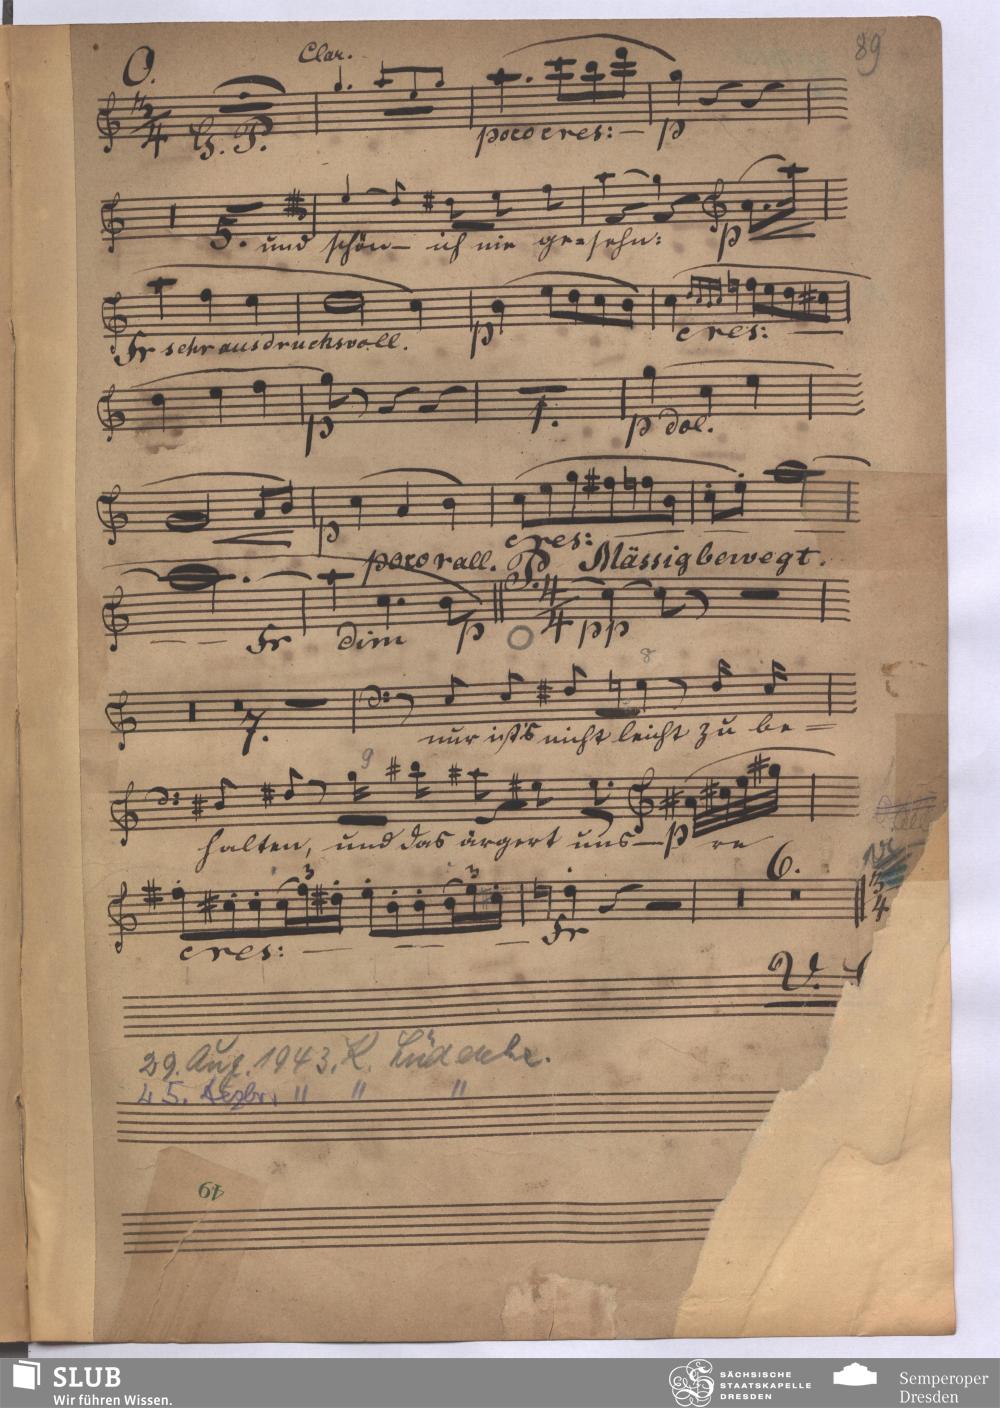 89
O.
Clar.
3/4 G. P. poco cres: p
5. und schön – ich nie ge=sehn: p
fr sehr ausdrucksvoll. p cres:
p 1. p dol.
p cres:
poco rall. P. Mässig bewegt.
fr dim p 4/4 pp
8
7. nur ist's nicht leicht zu be=
9
halten, und das ärgert uns – p
3 3 6. 3/4
cres: fr
V.
29. Aug. 1943. K.
5. Dezbr. " " "
61
SLUB
Wir führen Wissen.
SÄCHSISCHE
STAATSKAPELLE
DRESDEN
Semperoper
Dresden